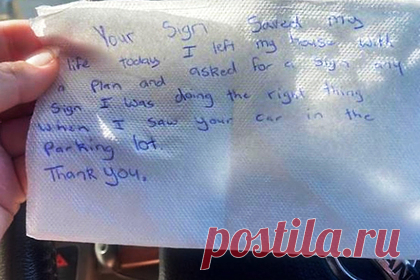 Your Sign Saved my
life today I left my house with
a plan and asked for a sign any
sign I was doing the right thing
when I saw your car in the
parking lot.
Thank you.
postila.ru